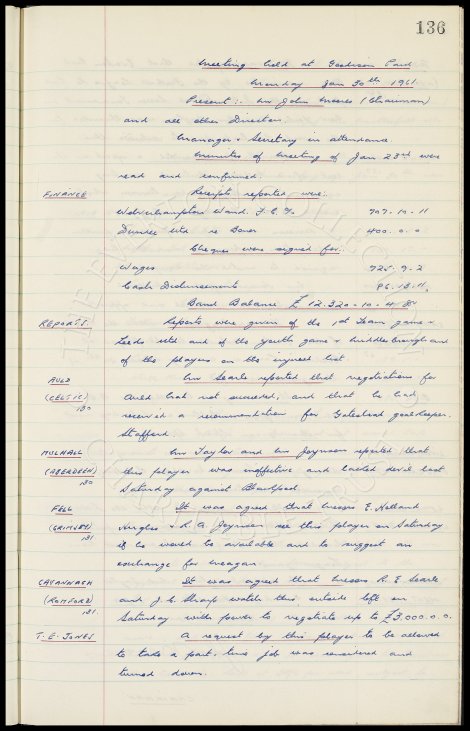 136
Meeting held at Goodison Park
Monday Jan 30th 1961.
Present :- Mr John Moores (Chairman)
and all other Directors.
Manager & Secretary in attendance
Minutes of Meeting of Jan 23rd were
read and confirmed.
FINANCE Receipts reported were:.
Wolverhampton Wand. F.C. 707.10.11
Dundee Utd re Bover 400.0.0
Cheques were signed for.
Wages 725.9.2
Cash Disbursements 96.13.11
Bank Balance £ 12.320.10.4
REPORTS. Reports were given of the 1st Team game v
Leeds Utd and of the Youth game v Middlesbrough and
of the players on the injured list
AULD Mr Searle reported that negotiations for
(CELTIC) Auld had not succeeded, and that he had
130 received a recommendation for Gateshead goalkeeper.
Stafford.
MULHALL Mr Taylor and Mr Joynson reported that
(ABERDEEN) this player was ineffective and lacked devil last
130 Saturday against
FELL It was agreed that Messrs E. Holland
(GRIMSBY) Hughes & R. A. Joynson see this player on Saturday
131 if he would be available and to suggest an
exchange for Meagan.
CAVANNAGH It was agreed that Messrs R. E. Searle
(ROMFORD) and J. C. Sharp watch this outside left on
131 Saturday with power to negotiate up to £3.000.0.0.
T. E. JONES A request by this player to be allowed
to take a part. time job was considered and
turned down.